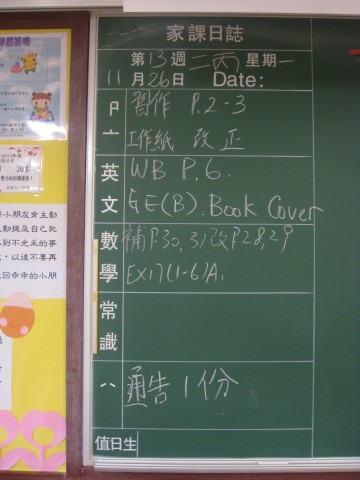 家課日誌
第13週 二丙 星期一
11月26日 Date:
中 習作 P.2-3
工作紙 改正
英文 WB P.6.
GE(B). Book Cover
數學 補P.30,31改P.28,29
EX17(1-6)A.
常識
八 通告1份
值日生
小朋友肯主動
動提及自己犯
不光采的事
以這不要再
回乖乖的小朋